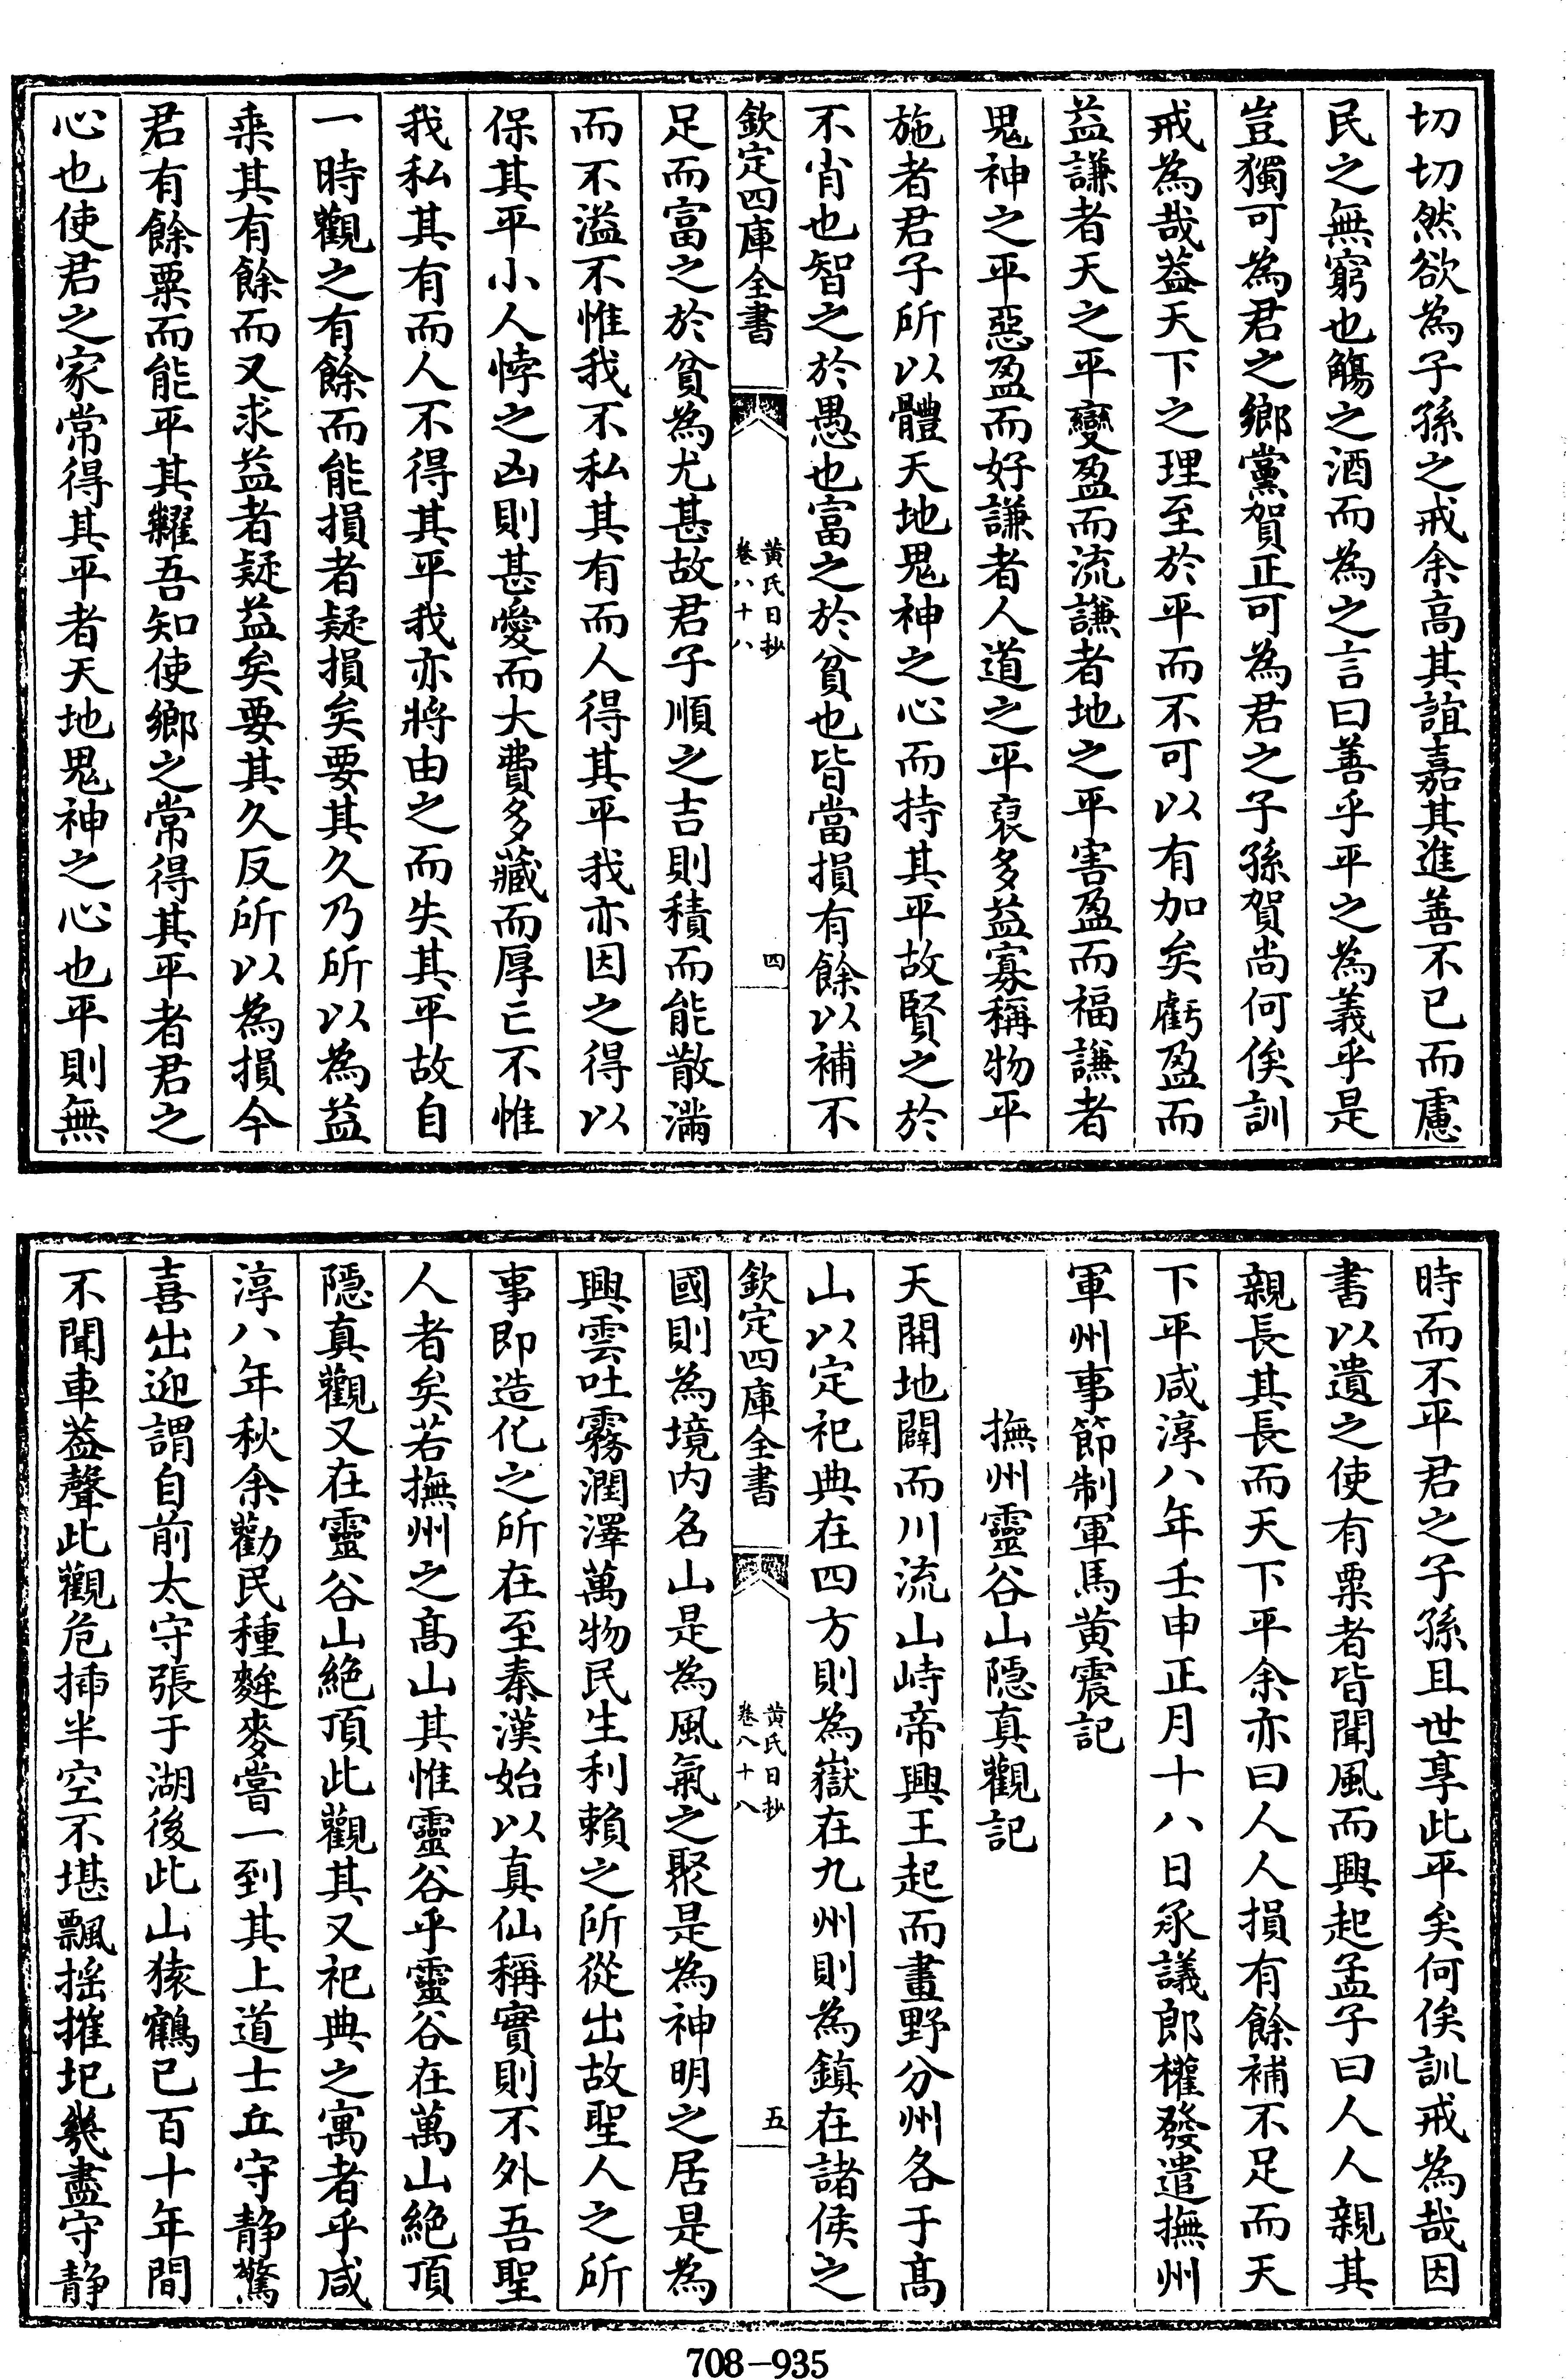 切切然欲為子孫之戒余高其誼嘉其進善不已而慮
民之無窮也觴之酒而為之言曰善乎平之為義乎是
豈獨可為君之鄉黨賀正可為君之子孫賀尚何俟訓
戒為哉葢天下之理至於平而不可以有加矣虧盈而
益謙者天之平變盈而流謙者地之平害盈而福謙者
鬼神之平惡盈而好謙者人道之平裒多益寡稱物平
施者君子所以體天地鬼神之心而持其平故賢之於
不肖也智之於愚也富之於貧也皆當損有餘以補不
欽定四庫全書 黃氏日抄 卷八十八 四
足而富之於貧為尤甚故君子順之吉則積而能散滿
而不溢不惟我不私其有而人得其平我亦因之得以
保其平小人悖之凶則甚愛而大費多藏而厚亡不惟
我私其有而人不得其平我亦將由之而失其平故自
一時觀之有餘而能損者疑損矣要其久乃所以為益
乗其有餘而又求益者疑益矣要其久反所以為損今
君有餘粟而能平其糶吾知使鄉之常得其平者君之
心也使君之家常得其平者天地鬼神之心也平則無
時而不平君之子孫且世享此平矣何俟訓戒為哉因
書以遺之使有粟者皆聞風而興起孟子曰人人親其
親長其長而天下平余亦曰人人損有餘補不足而天
下平咸淳八年壬申正月十八日承議郎權發遣撫州
軍州事節制軍馬黄震記
撫州靈谷山隱真觀記
天開地闢而川流山峙帝興王起而畫野分州各于髙
山以定祀典在四方則為嶽在九州則為鎮在諸侯之
欽定四庫全書 黃氏日抄 卷八十八 五
國則為境内名山是為風氣之聚是為神明之居是為
興雲吐霧潤澤萬物民生利賴之所從出故聖人之所
事即造化之所在至秦漢始以真仙稱實則不外吾聖
人者矣若撫州之髙山其惟靈谷乎靈谷在萬山絶頂
隱真觀又在靈谷山絶頂此觀其又祀典之寓者乎咸
淳八年秋余勸民種麰麥嘗一到其上道士丘守静驚
喜出迎謂自前太守張于湖後此山猿鶴已百十年間
不聞車葢聲此觀危揷半空不堪飄揺摧圯幾盡守静
708-935